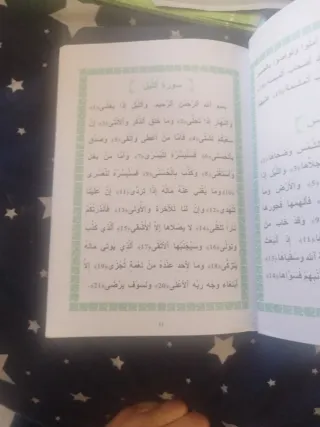 سورة الليل
بسم الله الرحمن الرحيم وَاللَّيْلِ إِذَا يَغْشَى(1)
وَالنَّهَارِ إِذَا تَجَلَّى(2) وَمَا خَلَقَ الذَّكَرَ وَالْأُنْثَى(3) إِنَّ
سَعْيَكُمْ لَشَتَّى(4) فَأَمَّا مَنْ أَعْطَى وَاتَّقَى(5) وَصَدَّقَ
بِالْحُسْنَى(6) فَسَنُيَسِّرُهُ لِلْيُسْرَى(7) وَأَمَّا مَنْ بَخِلَ
وَاسْتَغْنَى(8) وَكَذَّبَ بِالْحُسْنَى(9) فَسَنُيَسِّرُهُ لِلْعُسْرَى
(10) وَمَا يُغْنِي عَنْهُ مَالُهُ إِذَا تَرَدَّى(11) إِنَّ عَلَيْنَا
لَلْهُدَى(12) وَإِنَّ لَنَا لَلْآخِرَةَ وَالْأُولَى(13) فَأَنْذَرْتُكُمْ
نَارًا تَلَظَّى(14) لَا يَصْلَاهَا إِلَّا الْأَشْقَى(15) الَّذِي كَذَّبَ
وَتَوَلَّى(16) وَسَيُجَنَّبُهَا الْأَتْقَى(17) الَّذِي يُؤْتِي مَالَهُ
يَتَزَكَّى(18) وَمَا لِأَحَدٍ عِنْدَهُ مِنْ نِعْمَةٍ تُجْزَى(19) إِلَّا
ابْتِغَاءَ وَجْهِ رَبِّهِ الْأَعْلَى(20) وَلَسَوْفَ يَرْضَى(21)